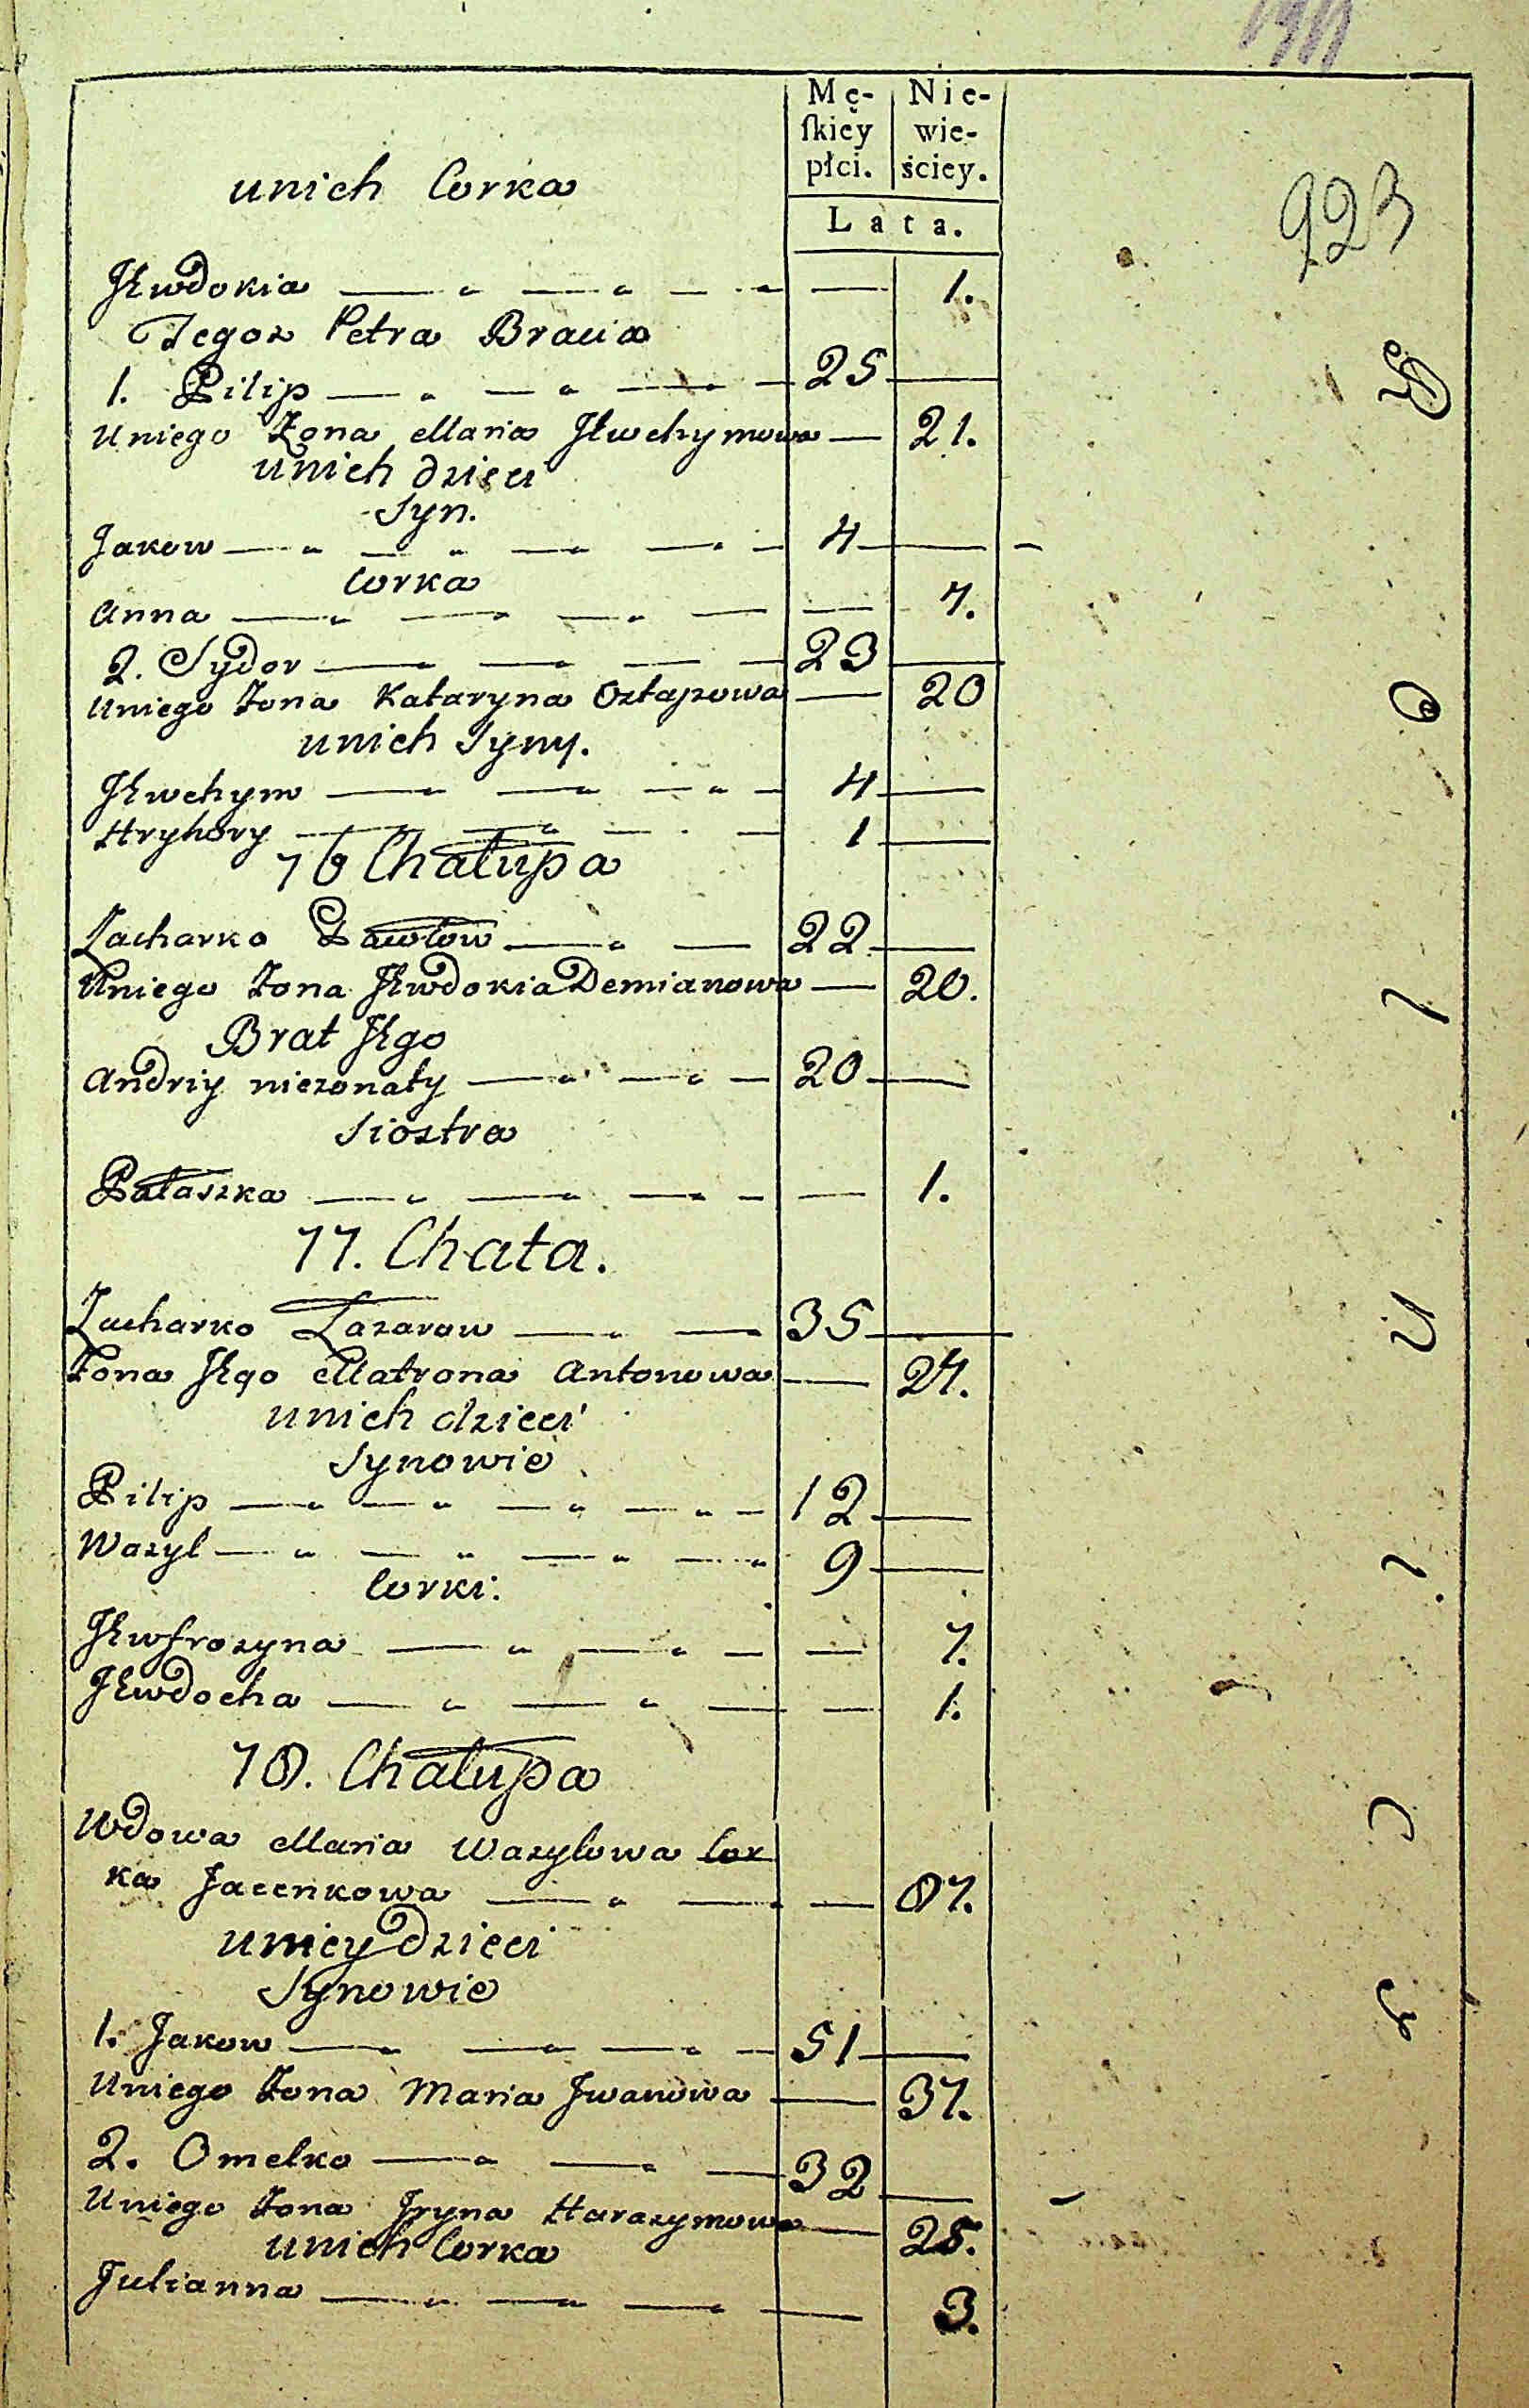 Mę- Nie-
ſkiey wie-
płci. ściey.
Lata.
923
unich Corka
Jewdokia — — — — 1.
Tegoz Petra Bracia
1. Pilip — — — 25 —
Uniego Zona Maria Jewchymowa — 21.
unich dzieci
Syn.
Jakow — — — — 4 —
Corka
Anna — — — — — 7.
2. Sydor — — — 23 —
Uniego Zona Kataryna Ostapowa — 20
unich Syny.
Jewchym — — — 4 —
Hryhory — — — 1 —
76 Chałupa
Zacharko Pawłow — — 22 —
Uniego Zona Jewdokia Demianowa — 20.
Brat Jego
Andriy niezonaty — — 20 —
Siostra
Pałaszka — — — — 1.
77. Chata.
Zacharko Łazarow — — 35 —
Zona Jego Matrona Antonowa — 27.
unich dzieci
Synowie
Pilip — — — — 12 —
Wasyl — — — — 9 —
Corki.
Jewfrozyna — — — — 7.
Jewdocha — — — — 1.
78. Chałupa
Wdowa Maria Wasylowa Cor
ka Jacenkowa — — — 87.
uniey Dzieci
Synowie
1. Jakow — — — — 51 —
Uniego Zona Maria Jwanowa — 37.
2. Omelko — — — 32 —
Uniego Zona Jryna Harasymowa — 25.
unich Corka
Julianna — — — — 3.